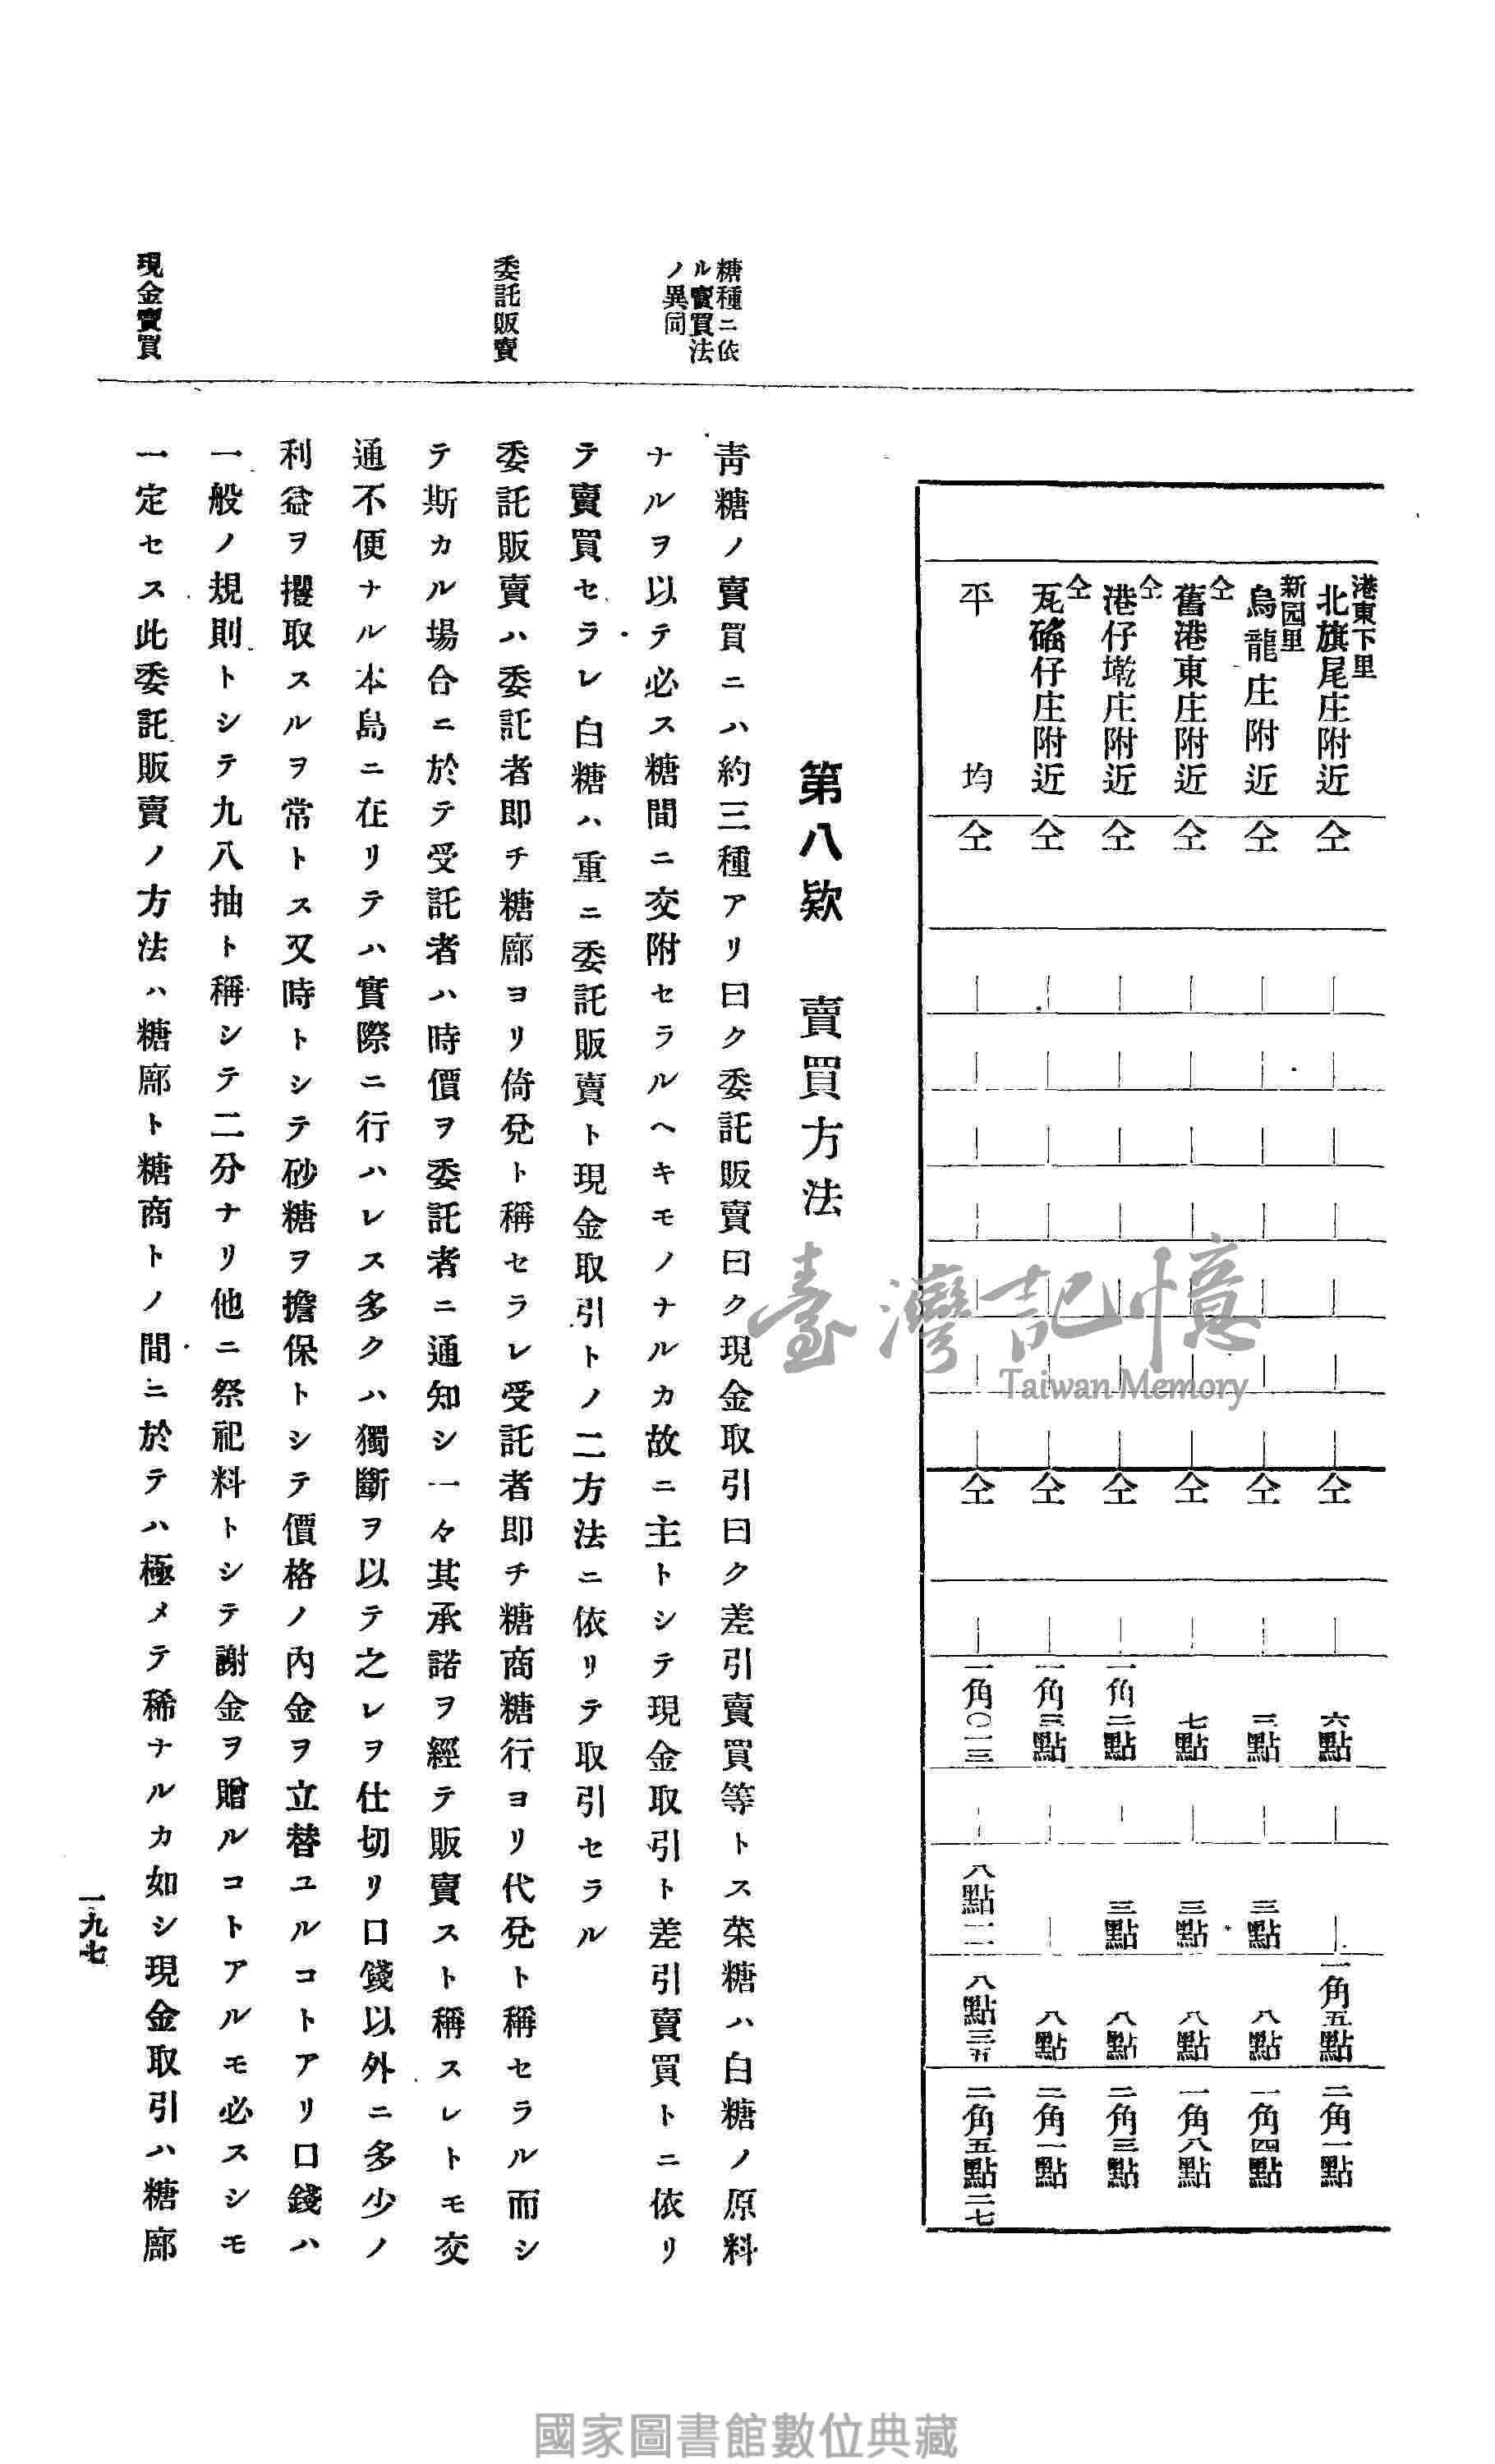 港東下里
北旗尾庄附近 仝 ｜ ｜ ｜ ｜ ｜ ｜ ｜ 仝 ｜ 六點 ｜ ｜ 一角五點 二角一點
新园里
烏龍庄附近 仝 ｜ ｜ ｜ ｜ ｜ ｜ ｜ 仝 ｜ 三點 ｜ 三點 八點 一角四點
仝
舊港東庄附近 仝 ｜ ｜ ｜ ｜ ｜ ｜ ｜ 仝 ｜ 七點 ｜ 三點 八點 一角八點
仝
港仔墘庄附近 仝 ｜ ｜ ｜ ｜ ｜ ｜ ｜ 仝 ｜ 一角二點 ｜ 三點 八點 二角三點
仝
瓦磘仔庄附近 仝 ｜ ｜ ｜ ｜ ｜ ｜ ｜ 仝 ｜ 一角三點 ｜ ｜ 八點 二角一點
平均 仝 ｜ ｜ ｜ ｜ ｜ ｜ ｜ 仝 ｜ 一角〇一三 ｜ 八點二一 八點三五 二角五點二七
第八欵　賣買方法
糖種ニ依
ル賣買法
ノ異同
靑糖ノ賣買ニハ約三種アリ曰ク委託販賣曰ク現金取引曰ク差引賣買等トス菜糖ハ白糖ノ原料
ナルヲ以テ必ス糖間ニ交附セラルヘキモノナルカ故ニ主トシテ現金取引ト差引賣買トニ依リ
テ賣買セラレ白糖ハ重ニ委託販賣ト現金取引トノ二方法ニ依リテ取引セラル
委託販賣
委託販賣ハ委託者即チ糖廍ヨリ倚兌ト稱セラレ受託者即チ糖商糖行ヨリ代兌ト稱セラル而シ
テ斯カル場合ニ於テ受託者ハ時價ヲ委託者ニ通知シ一々其承諾ヲ經テ販賣スト稱スレトモ交
通不便ナル本島ニ在リテハ實際ニ行ハレス多クハ獨斷ヲ以テ之レヲ仕切リ口錢以外ニ多少ノ
利益ヲ攫取スルヲ常トス又時トシテ砂糖ヲ擔保トシテ價格ノ內金ヲ立替ユルコトアリ口錢ハ
一般ノ規則トシテ九八抽ト稱シテ二分ナリ他ニ祭祀料トシテ謝金ヲ贈ルコトアルモ必スシモ
一定セス此委託販賣ノ方法ハ糖廍ト糖商トノ間ニ於テハ極メテ稀ナルカ如シ現金取引ハ糖廍
現金賣買
一九七
臺灣記憶
Taiwan Memory
國家圖書館數位典藏